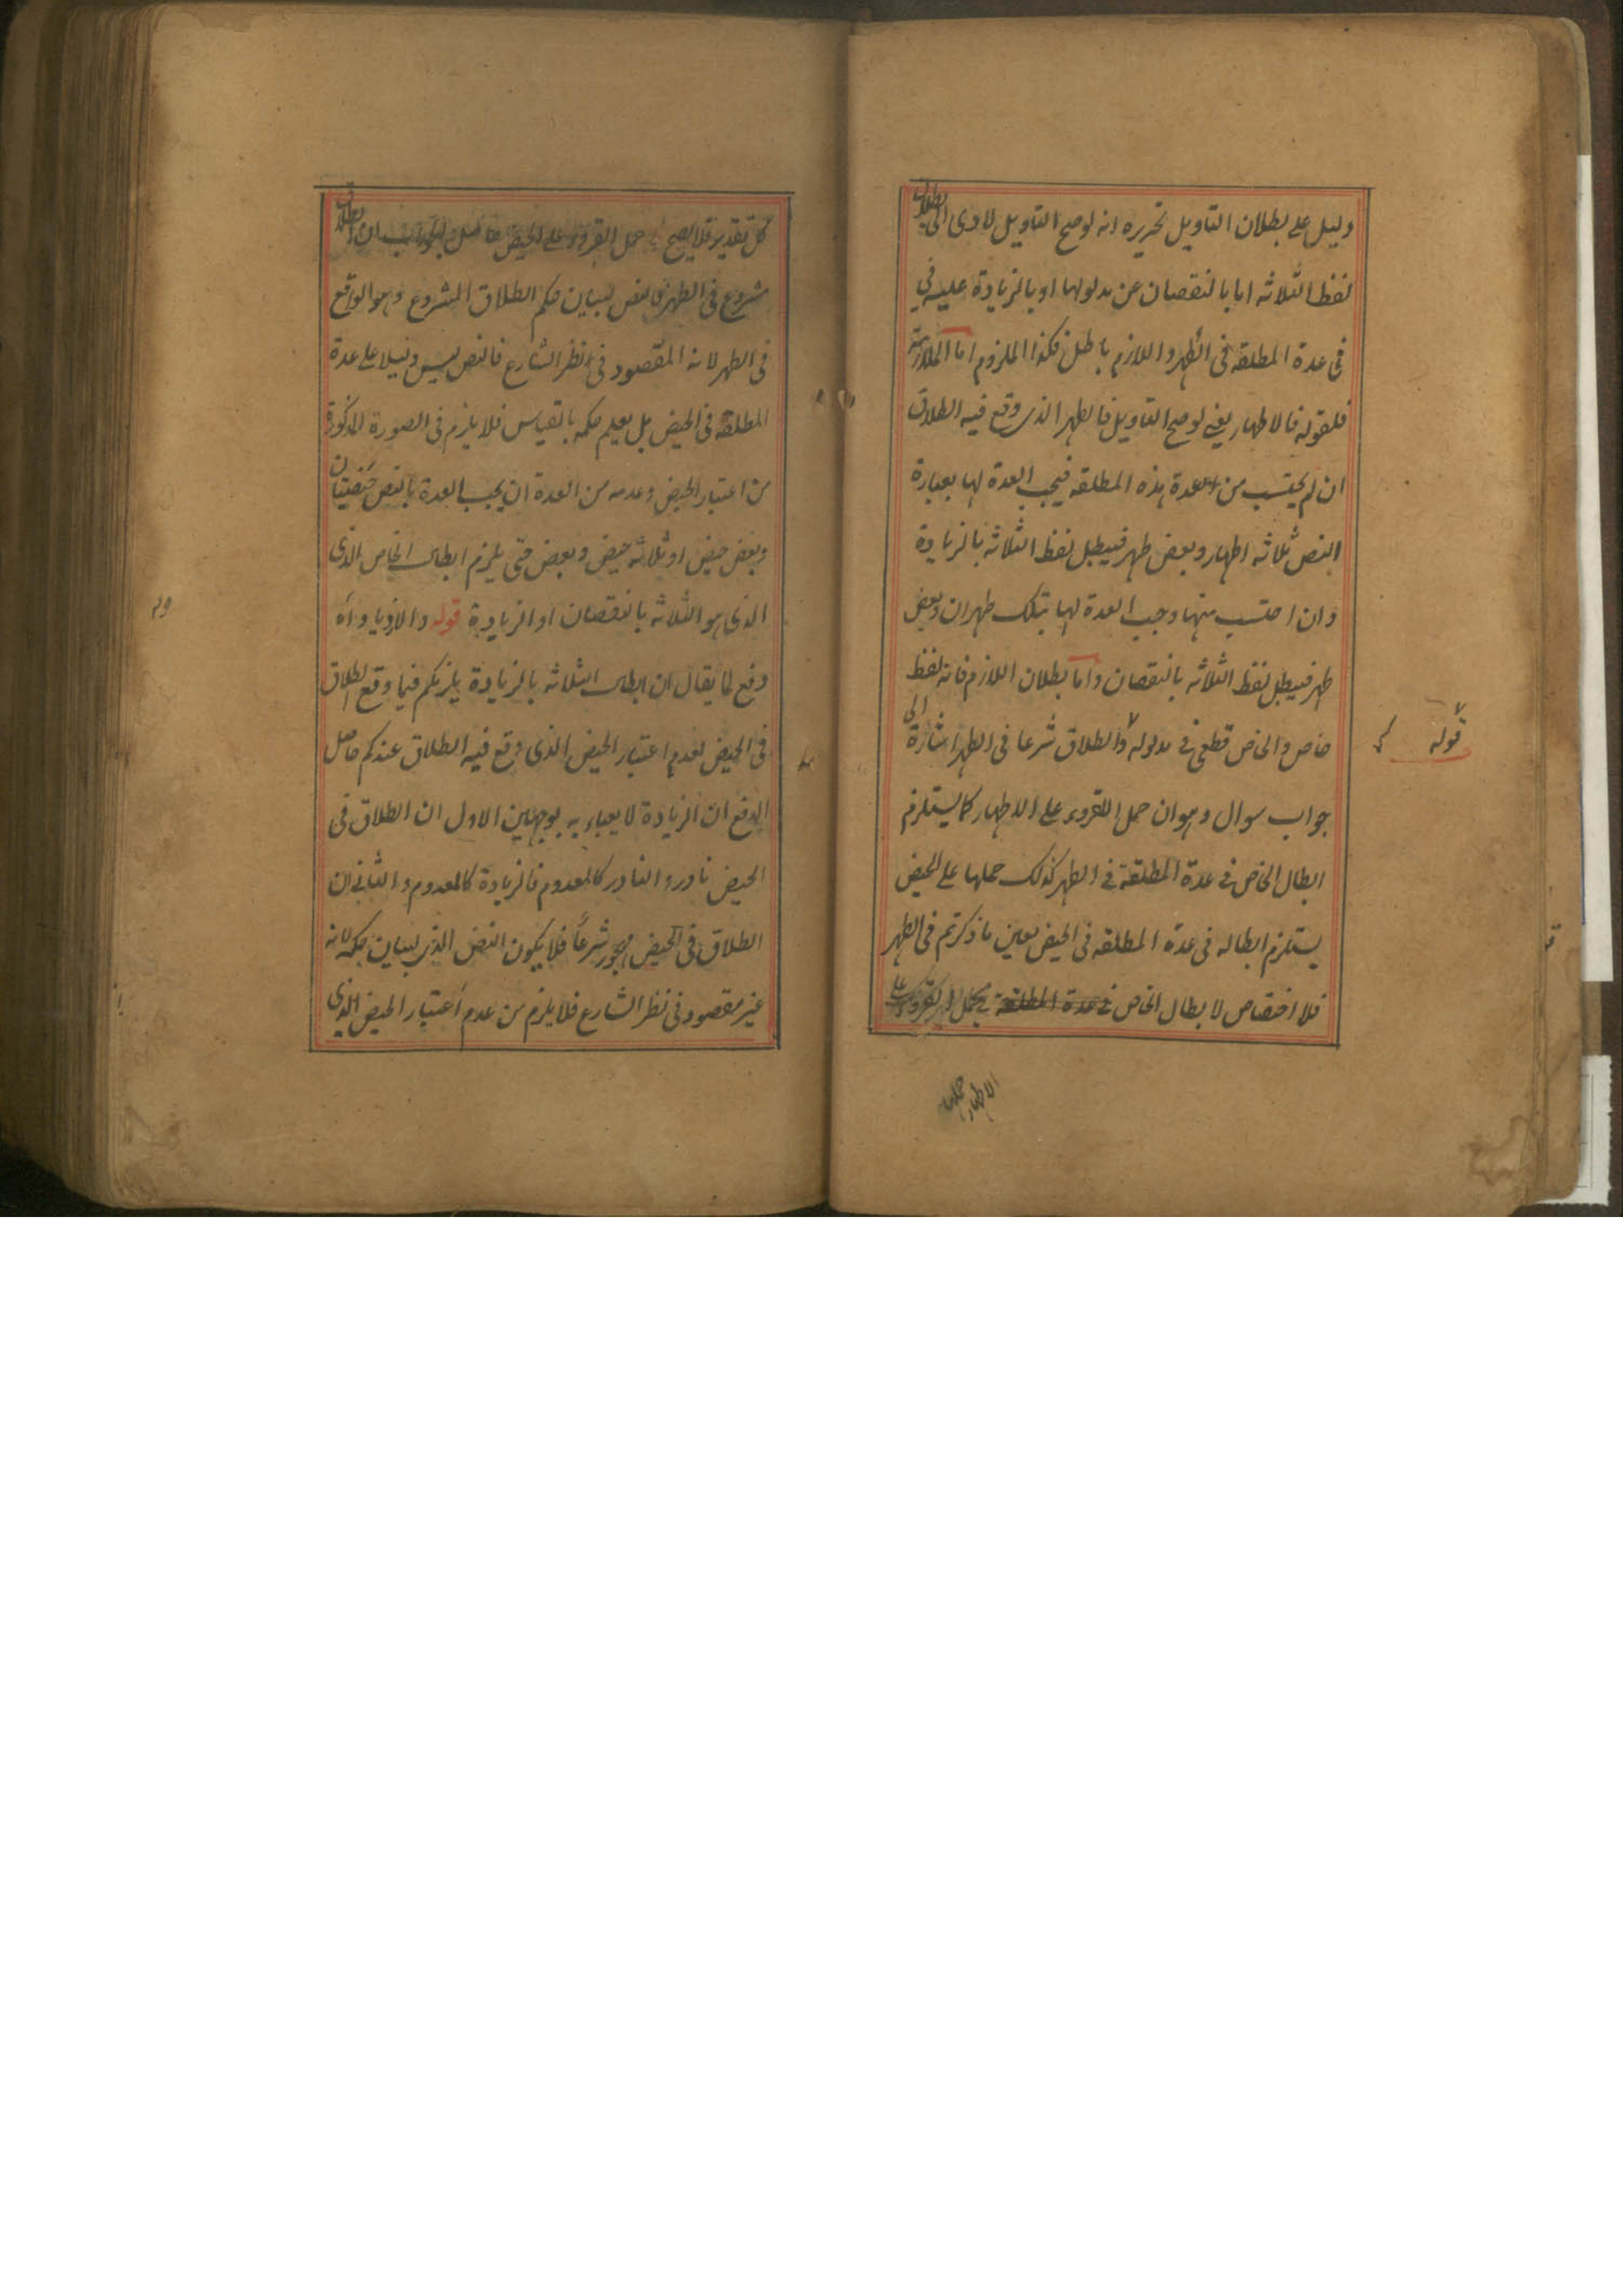 دليل على بطلان التاويل تحريره انه لوصح التاويل لادى الى بطلان
لفظ الثلاثه اما بالنقصان عن مدلولها او بالزيادة عليه في
فى عدة المطلقه فى الطهر واللازم باطل فكذا الملزوم اما الملازمة
فلقوله فالاطهار يعني لوصح التاويل فالطهر الذى وقع فيه الطلاق
ان لم يحتسب من عدة هذه المطلقه فيجب العدة لها بعبارة
النص ثلاثه اطهار وبعض طهر فيبطل لفظ الثلاثه بالزيادة
وان احتسب منها وجب العدة لها بتلك طهران وبعض
طهر فيبطل لفظ الثلاثه بالنقصان واما بطلان اللازم فانه لفظ
خاص والخاص قطعى فى مدلوله والطلاق شرعا فى الطهر اشارة الى
جواب سوال وهوان حمل القروء على الاطهار كما يستلزم
ابطال الخاص فى عدة المطلقة فى الطهر كذلك حملها على الحيض
يستلزم ابطاله فى عدة المطلقه فى الحيض بعين ما ذكرتم فى الطهر
فلا اختصاص لابطال الخاص فى عدة المطلقة بحمل القروء على
الاطهار حملها
قوله
كل تقدير فلا يصح حمل القروء على الحيض حاصل الجواب ان الطلاق
مشروع فى الطهر فالنص لبيان حكم الطلاق المشروع وهو الواقع
فى الطهر لانه المقصود فى نظر الشارع فالنص ليس دليلا على عدة
المطلقة فى الحيض بل يعلم حكمه بالقياس فلا يلزم فى الصورة المذكورة
من اعتبار الحيض وعدمه من العدة ان يجب العدة بالنص حيضتان
وبعض حيض او ثلاثه حيض وبعض حتى يلزم ابطال الخاص الذى
الذى هو الثلاثه بالنقصان او الزيادة قوله والازدياد اه
دفع لما يقال ان ابطال الثلاثه بالزيادة يلزمكم فيما وقع الطلاق
فى الحيض لعدم اعتبار الحيض الذى وقع فيه الطلاق عندكم حاصل
الدفع ان الزيادة لا يعباء به بوجهين الاول ان الطلاق فى
الحيض نادر والنادر كالمعدوم فالزيادة كالمعدوم والثانى ان
الطلاق فى الحيض مهجور شرعاً فلا يكون النص الذى لبيان حكمه لانه
غير مقصود فى نظر الشارع فلا يلزم من عدم اعتبار الحيض الذى